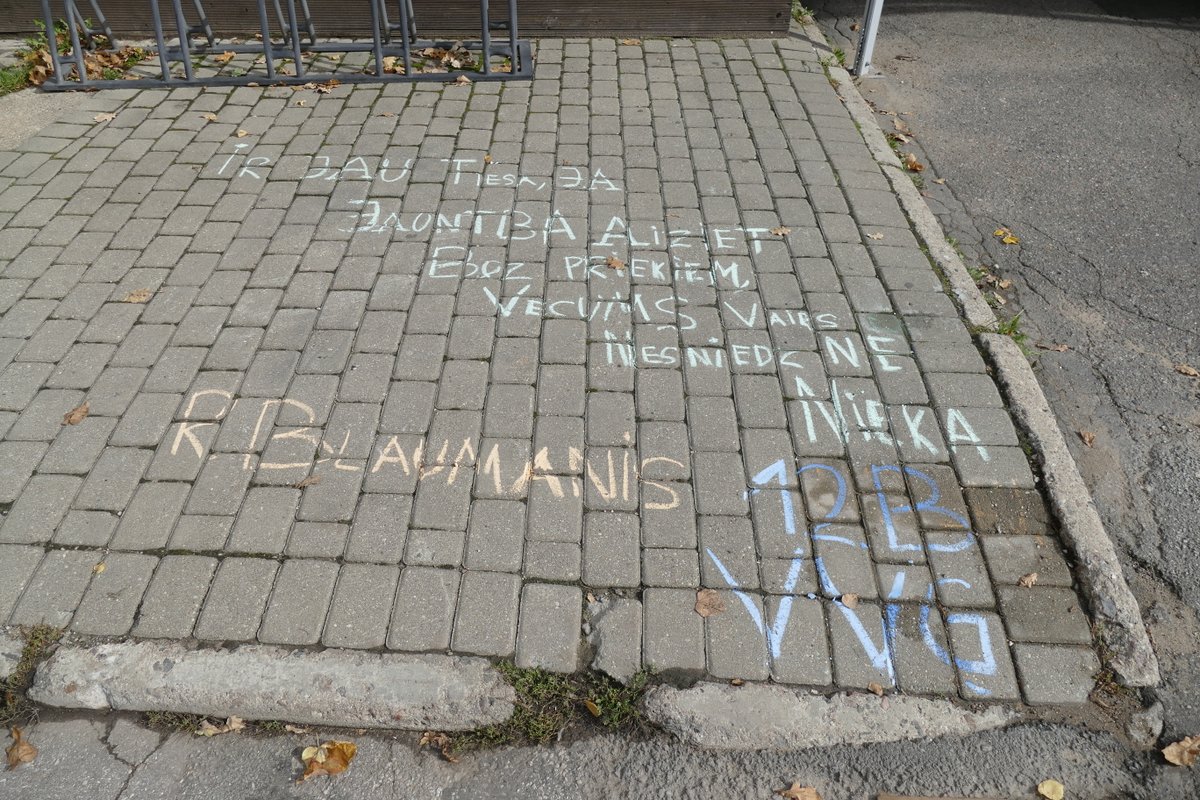 IR JAU TIESA, JA
JAUNTIBA AIZIET
BEZ PRIEKIEM,
VECUMS VAIRS NE
NESNIEDZ NE
NIEKA
R. BLAUMANIS
12.B
VVG